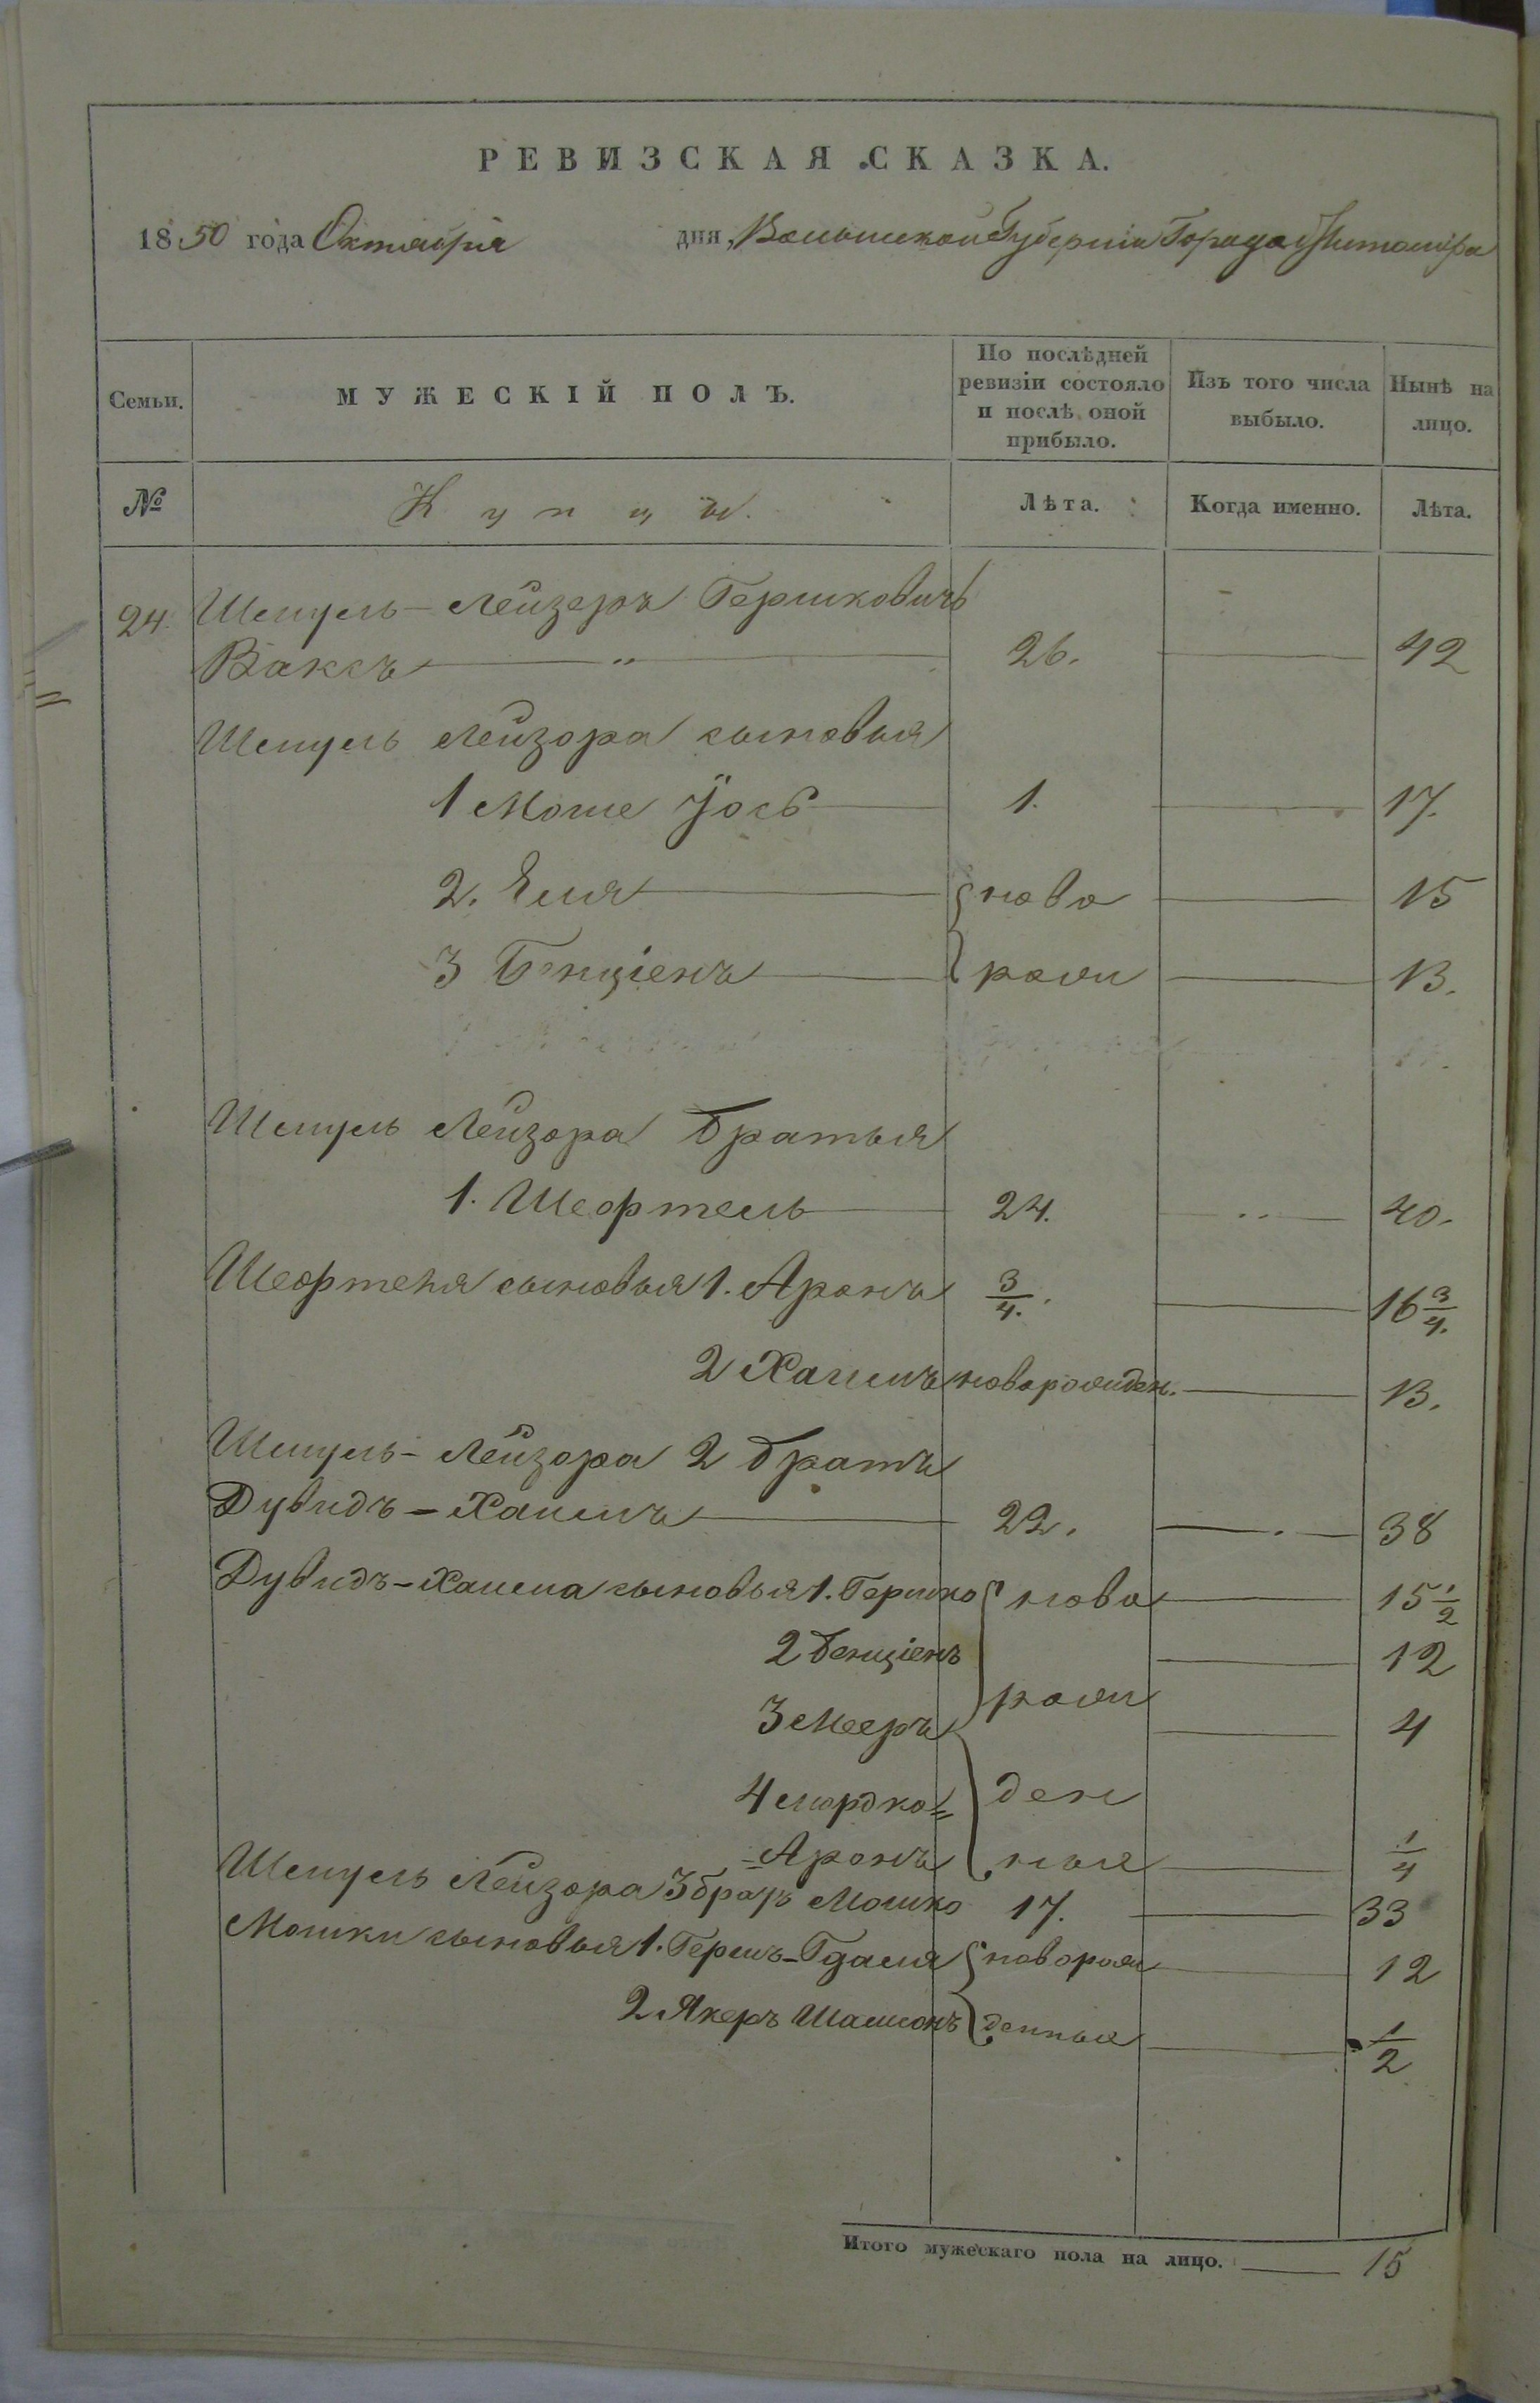 РЕВИЗСКАЯ СКАЗКА.
1850 года Октября дня, Волынской Губерніи Города Житомира
Семьи. МУЖЕСКІЙ ПОЛЪ. По послѣдней ревизіи состояло и послѣ оной прибыло. Изъ того числа выбыло. Нынѣ на лицо.
№ Купцы. Лѣта. Когда именно. Лѣта.
24. Шмуль-Лейзеръ Гершковичъ
Ваксъ 26. 42
Шмуль Лейзора сыновья
1 Моше Іось 1. 17.
2. Еля ново 15
3 Бенціенъ рож 13.
Шмуль Лейзора братья
1. Шефтель 24. 40.
Шефтеля сыновья 1. Аронъ 3/4. 16 3/4.
2 Хаимъ новорожден. 13.
Шмуль-Лейзора 2 братъ
Дувидъ-Хаимъ 22. 38
Дувидъ-Хаима сыновья 1. Гершко ново 15 1/2
2 Бенціенъ 12
3 Мееръ рож 4
4 Мордко= ден
=Аронъ ные 1/4
Шмуль Лейзора 3 братъ Мошко 17. 33
Мошки сыновья 1. Гершъ-Гдаля новорож 12
2 Янкеръ Шлиомъ денные 1/2
Итого мужескаго пола на лицо. 15